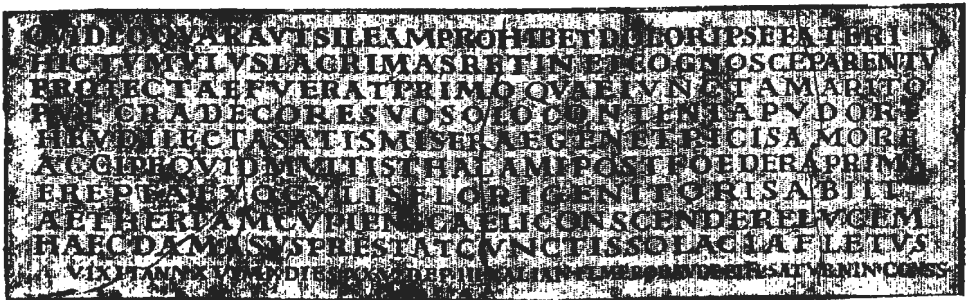 QVID LOQVAR AVT SILEAM PROHIBET DOLOR IPSE FATERI
HIC TVMVLVS LACRIMAS RETINET COGNOSCE PARENTV
PROIECTAE FVERAT PRIMO QVAE IVNCTA MARITO
PVLCRA DECORE SVO SOLO CONTENTA PVDORE
HEV DILECTA SATIS MISERAE GENETRICIS AMORE
ACCIPE QVID MVLTIS THALAMI POST FOEDERA PRIMA
EREPTA EX OCVLIS FLORI GENITORIS ABIIT
AETHERIAM CVPIENS CAELI CONSCENDERE LVCEM
HAEC DAMASVS PRESTAT CVNCTIS SOLACIA FLETVS
VIXIT ANN XVI M DIES DEP KAL IAN FL MEROBAVDE SATVRNIN CONSS